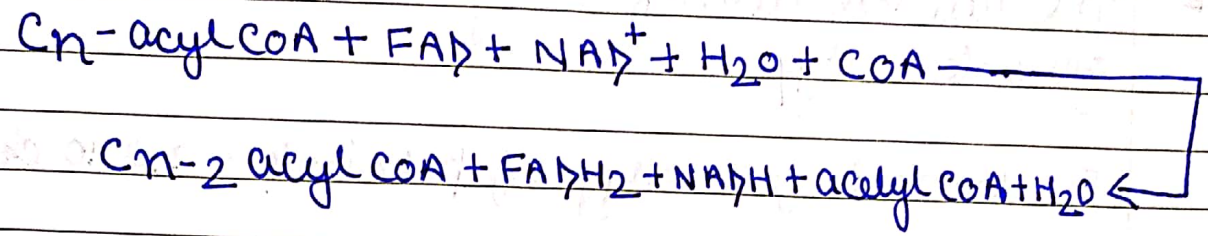 Cn-acyl COA + FAD + NAD+ + H2O + COA
Cn-2 acyl COA + FADH2 + NADH + acelyl COA + H2O